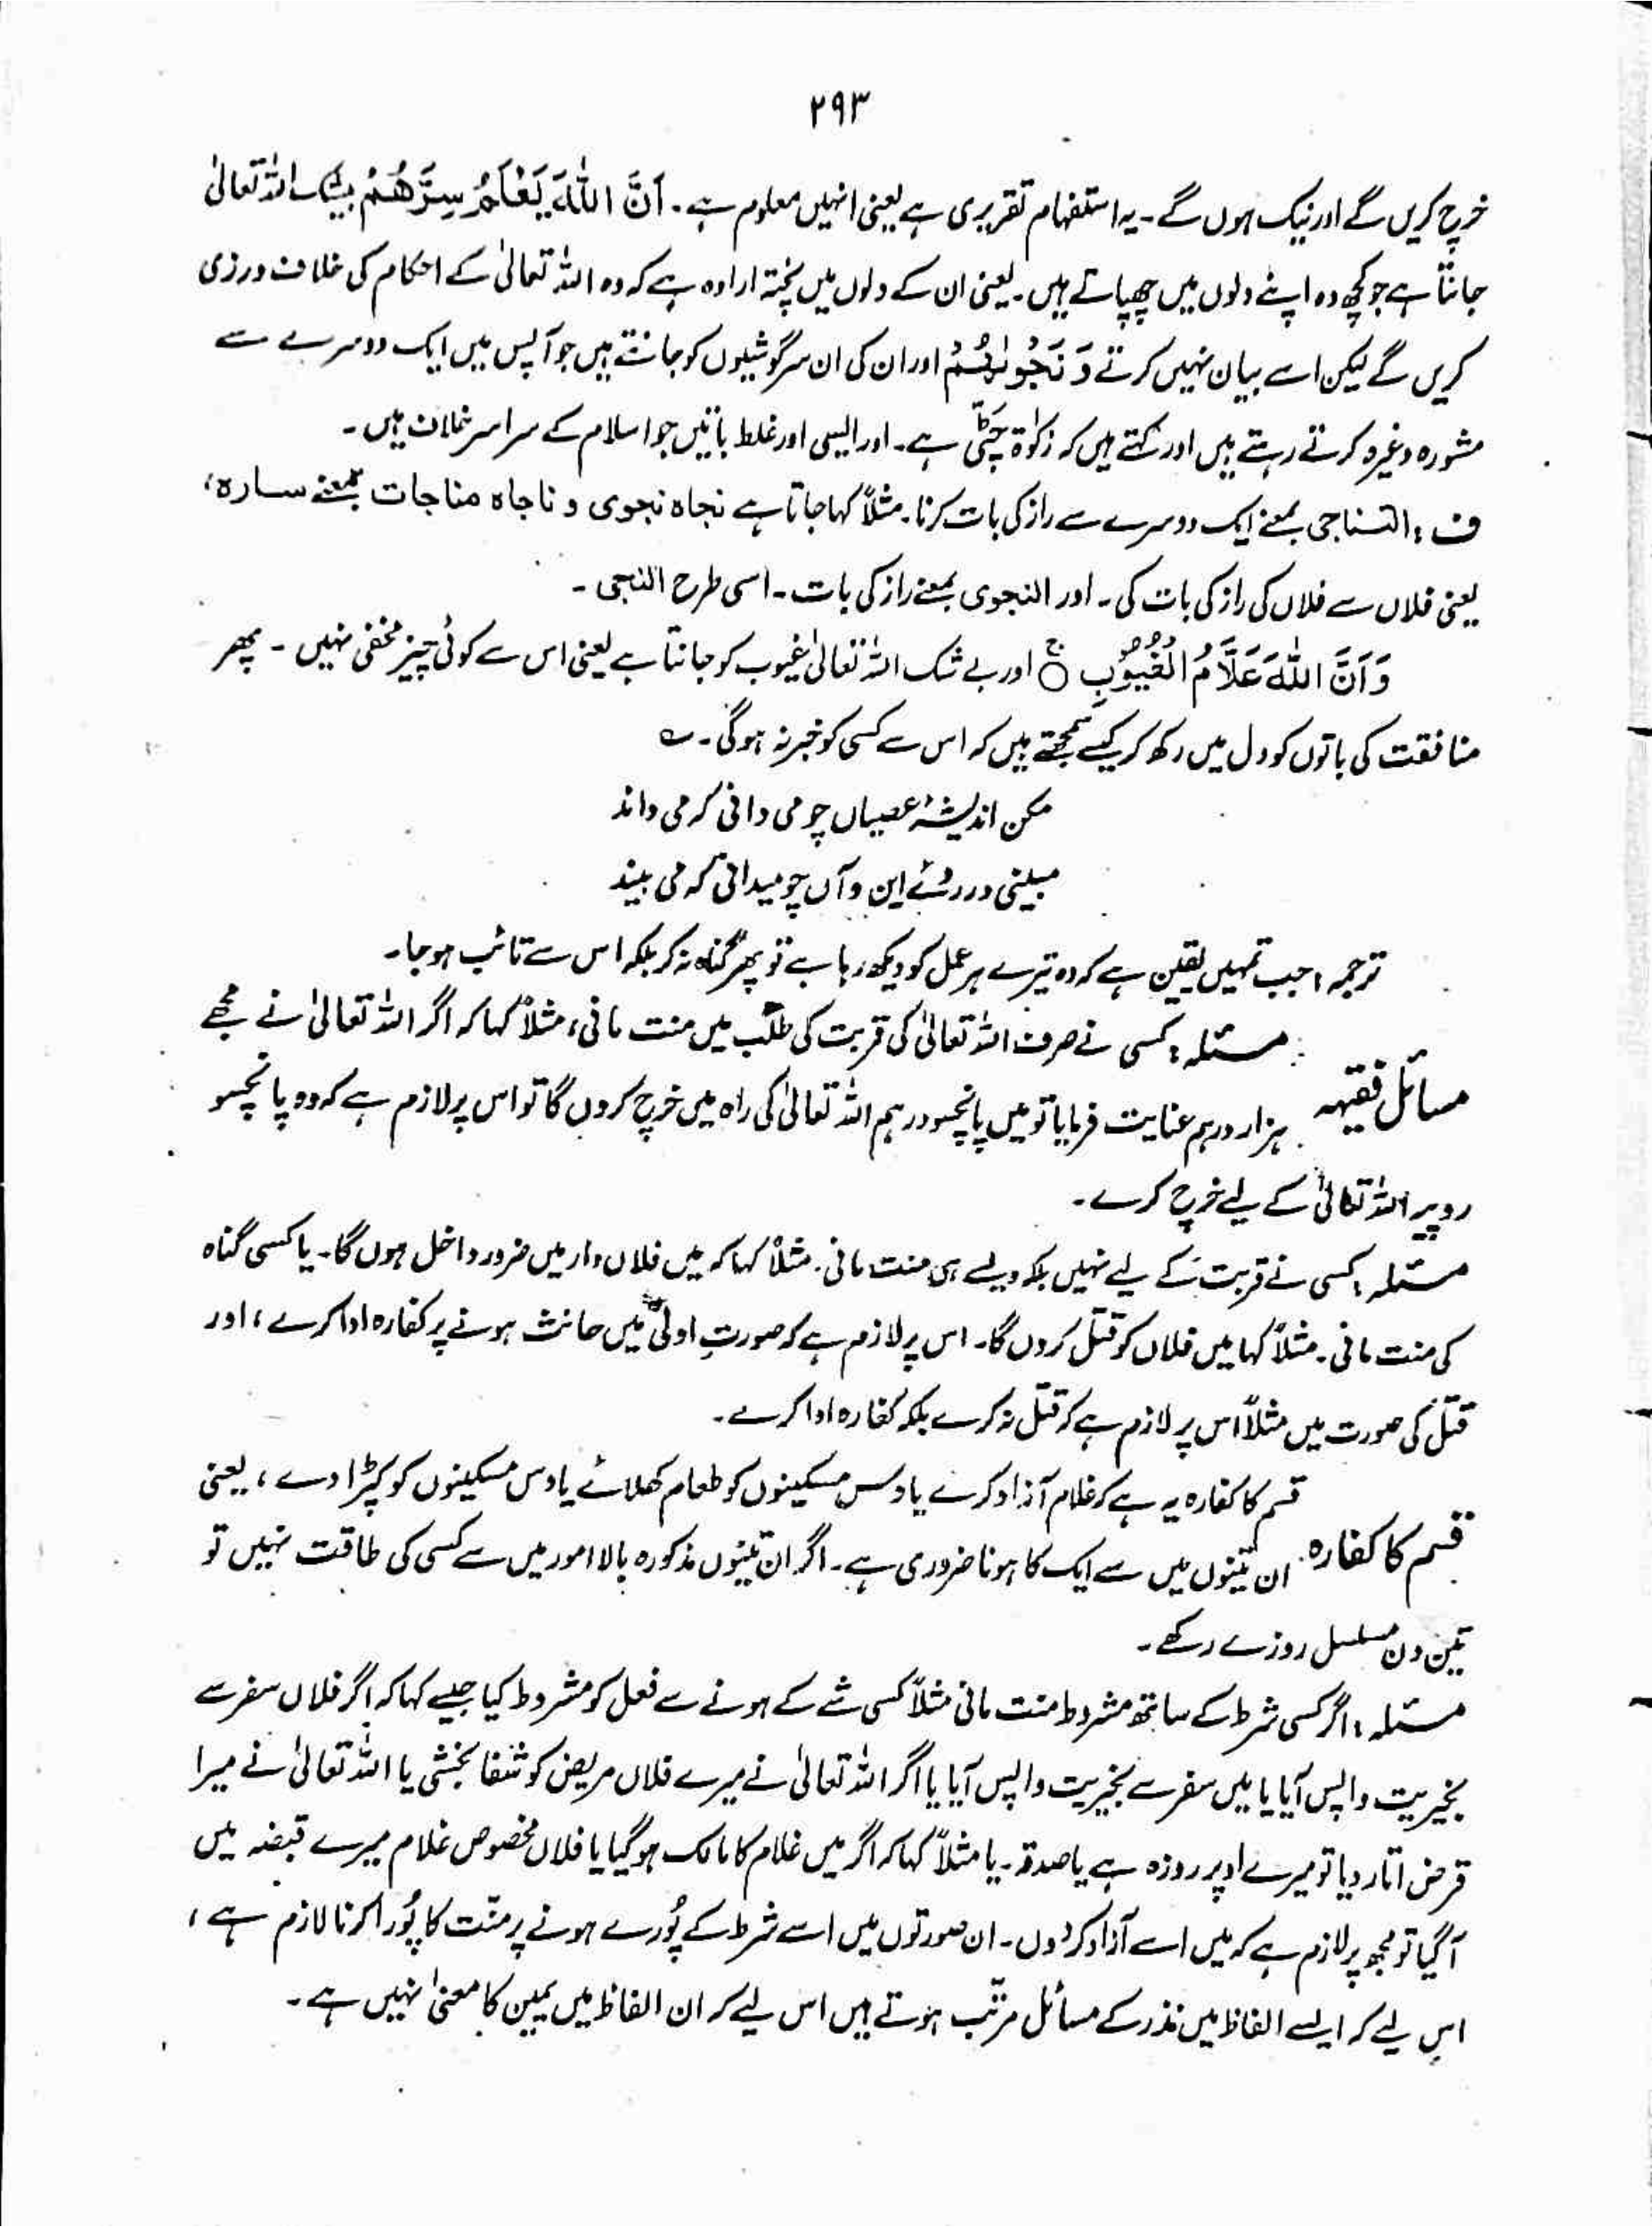 ۲۹۳
خرچ کریں گے اور نیک ہوں گے۔ یہ استفہام تقریری ہے یعنی انہیں معلوم ہے۔ اَنَّ اللّٰہَ یَعْلَمُ سِرَّھُمْ بیشک اللہ تعالیٰ
جانتا ہے جو کچھ وہ اپنے دلوں میں چھپاتے ہیں۔ یعنی ان کے دلوں میں پختہ ارادہ ہے کہ وہ اللہ تعالیٰ کے احکام کی خلاف ورزی
کریں گے لیکن اسے بیان نہیں کرتے وَ نَجْوٰىهُمْ اور ان کی ان سرگوشیوں کو جانتے ہیں جو آپس میں ایک دوسرے سے
مشورہ وغیرہ کرتے رہتے ہیں اور کہتے ہیں کہ زکوٰۃ چٹّی ہے۔ اور ایسی اور غلط باتیں جو اسلام کے سراسر خلاف ہیں۔
ف : التناجی بمعنے ایک دوسرے سے راز کی بات کرنا۔ مثلاً کہا جاتا ہے نجاہ نجوی و ناجاہ مناجات بمعنے سارہ،
یعنی فلاں سے فلاں کی راز کی بات کی۔ اور النجوی بمعنے راز کی بات۔ اسی طرح النجی۔
وَ اَنَّ اللّٰہَ عَلَّامُ الْغُیُوْبِ ○ اور بے شک اللہ تعالیٰ غیوب کو جانتا ہے یعنی اس سے کوئی چیز مخفی نہیں۔ پھر
منافقت کی باتوں کو دل میں رکھ کر کیسے سمجھتے ہیں کہ اس سے کسی کو خبر نہ ہوگی۔ ؎
مکن اندیشۂ عصیاں چو می دانی کہ می داند
مبینی در روئے این و آں چو میدانی کہ می بیند
ترجمہ : جب تمہیں یقین ہے کہ وہ تیرے ہر عمل کو دیکھ رہا ہے تو پھر گناہ نہ کر بلکہ اس سے تائب ہو جا۔
مسائل فقیہہ
مسئلہ : کسی نے صرف اللہ تعالیٰ کی قربت کی طلب میں منت مانی، مثلاً کہا کہ اگر اللہ تعالیٰ نے مجھے
ہزار درہم عنایت فرمایا تو میں پانچسو درہم اللہ تعالیٰ کی راہ میں خرچ کروں گا تو اس پر لازم ہے کہ وہ پانچسو
روپیہ اللہ تعالیٰ کے لیے خرچ کرے۔
مسئلہ : کسی نے قربت کے لیے نہیں بلکہ ویسے ہی منت مانی۔ مثلاً کہا کہ میں فلاں دار میں ضرور داخل ہوں گا۔ یا کسی گناہ
کی منت مانی۔ مثلاً کہا میں فلاں کو قتل کروں گا۔ اس پر لازم ہے کہ صورتِ اولیٰ میں حانث ہونے پر کفارہ ادا کرے، اور
قتل کی صورت میں مثلاً اس پر لازم ہے کہ قتل نہ کرے بلکہ کفارہ ادا کرے۔
قسم کا کفارہ
قسم کا کفارہ یہ ہے کہ غلام آزاد کرے یا دس مسکینوں کو طعام کھلائے یا دس مسکینوں کو کپڑا دے، یعنی
ان تینوں میں سے ایک کا ہونا ضروری ہے۔ اگر ان تینوں مذکورہ بالا امور میں سے کسی کی طاقت نہیں تو
تین دن مسلسل روزے رکھے۔
مسئلہ : اگر کسی شرط کے ساتھ مشروط منت مانی مثلاً کسی شے کے ہونے سے فعل کو مشروط کیا جیسے کہا کہ اگر فلاں سفر سے
بخیریت واپس آیا یا میں سفر سے بخیریت واپس آیا یا اگر اللہ تعالیٰ نے میرے فلاں مریض کو شفا بخشی یا اللہ تعالیٰ نے میرا
قرض اتار دیا تو میرے اوپر روزہ ہے یا صدقہ۔ یا مثلاً کہا کہ اگر میں غلام کا مالک ہوگیا یا فلاں مخصوص غلام میرے قبضہ میں
آگیا تو مجھ پر لازم ہے کہ میں اسے آزاد کردوں۔ ان صورتوں میں اسے شرط کے پُورے ہونے پر منّت کا پُورا کرنا لازم ہے،
اس لیے کہ ایسے الفاظ میں نذر کے مسائل مرتّب ہوتے ہیں اس لیے کہ ان الفاظ میں یمین کا معنیٰ نہیں ہے۔